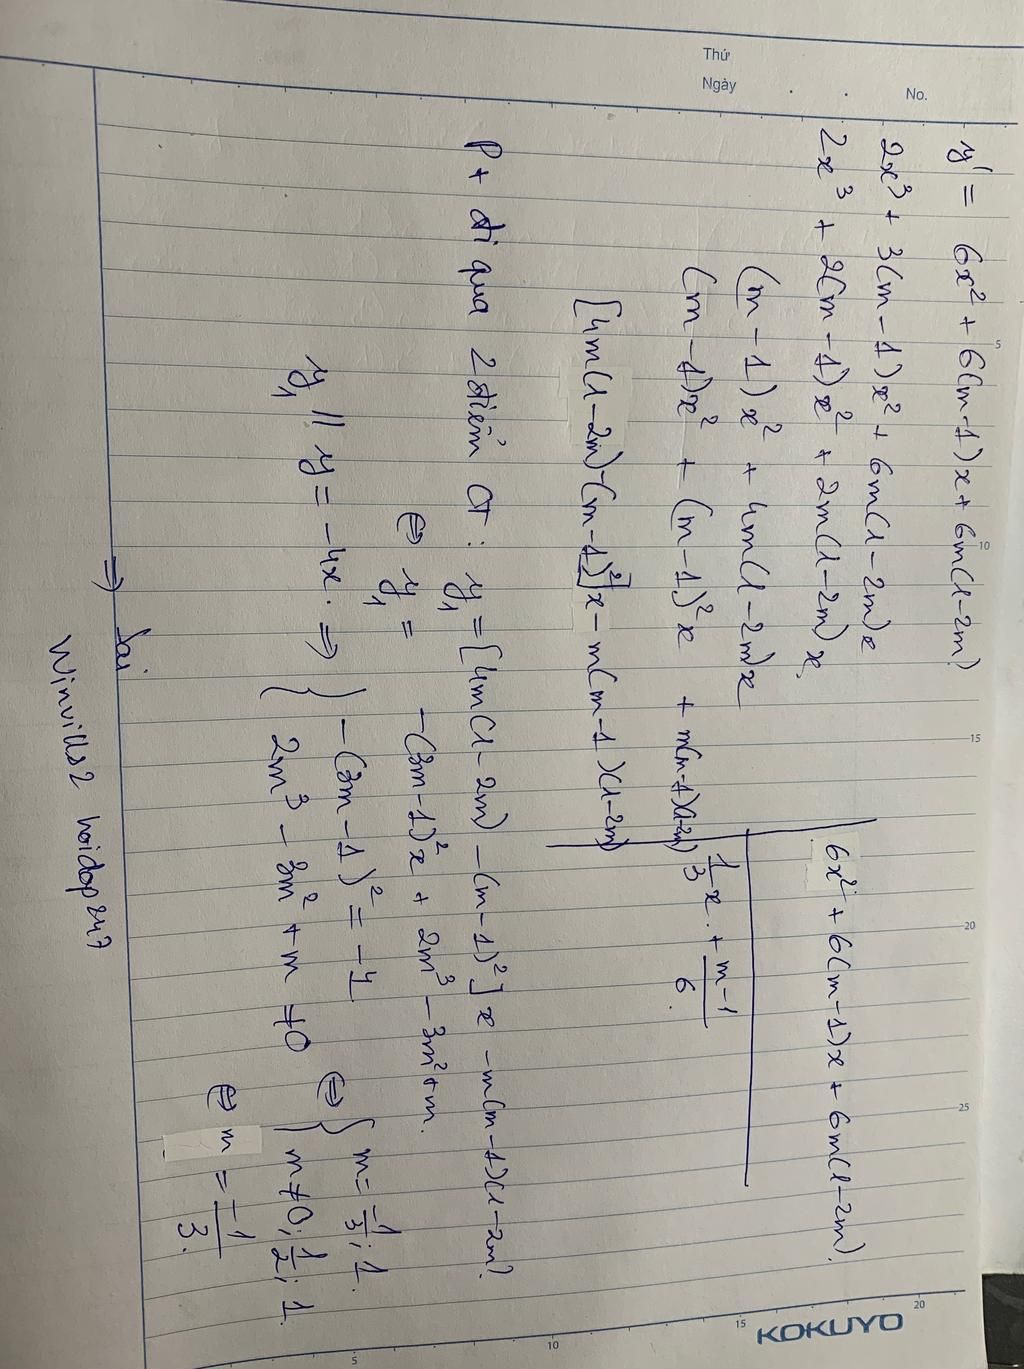 Thứ
Ngày
No.
y' = 6x² + 6(m-1)x + 6m(1-2m)
2x³ + 3(m-1)x² + 6m(1-2m)x
6x² + 6(m-1)x + 6m(1-2m).
2x³ + 2(m-1)x² + 2m(1-2m)x
(m-1)x² + 4m(1-2m)x
1/3 x + (m-1)/6.
(m-1)x² + (m-1)²x + m(m-1)(1-2m)
[4m(1-2m)-(m-1)²]x - m(m-1)(1-2m)
Pt đi qua 2 điểm CT: y₁ = [4m(1-2m) - (m-1)²]x - m(m-1)(1-2m).
⇔ y₁ = -(3m-1)²x + 2m³ - 3m² + m.
y₁ // y = -4x. ⇒ { -(3m-1)² = -4
2m³ - 3m² + m ≠ 0
⇔ { m = -1/3; 1.
m ≠ 0; 1/2; 1.
⇔ m = -1/3.
⇒ Sai
Winvills2 hoidap247
5
10
15
20
25
5
10
15
20
KOKUYO